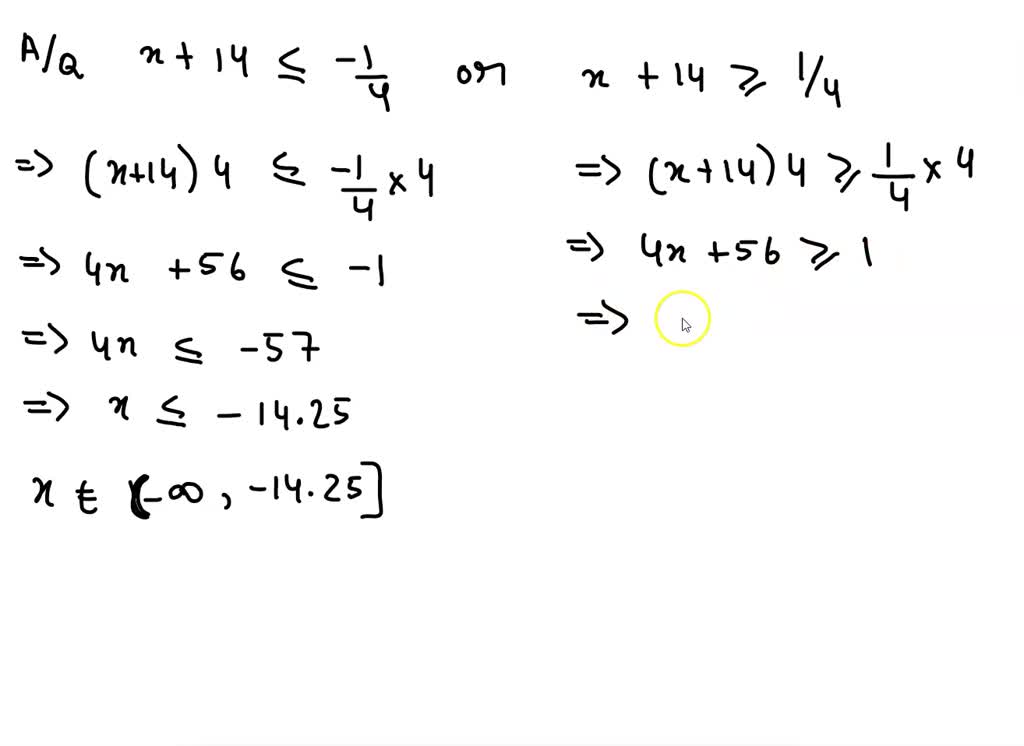 A/Q x + 14 ≤ -1/4 or x + 14 ≥ 1/4
=> (x+14) 4 ≤ -1/4 × 4
=> 4x + 56 ≤ -1
=> 4x ≤ -57
=> x ≤ -14.25
x ∈ (-∞, -14.25]
=> (x+14) 4 ≥ 1/4 × 4
=> 4x + 56 ≥ 1
=>